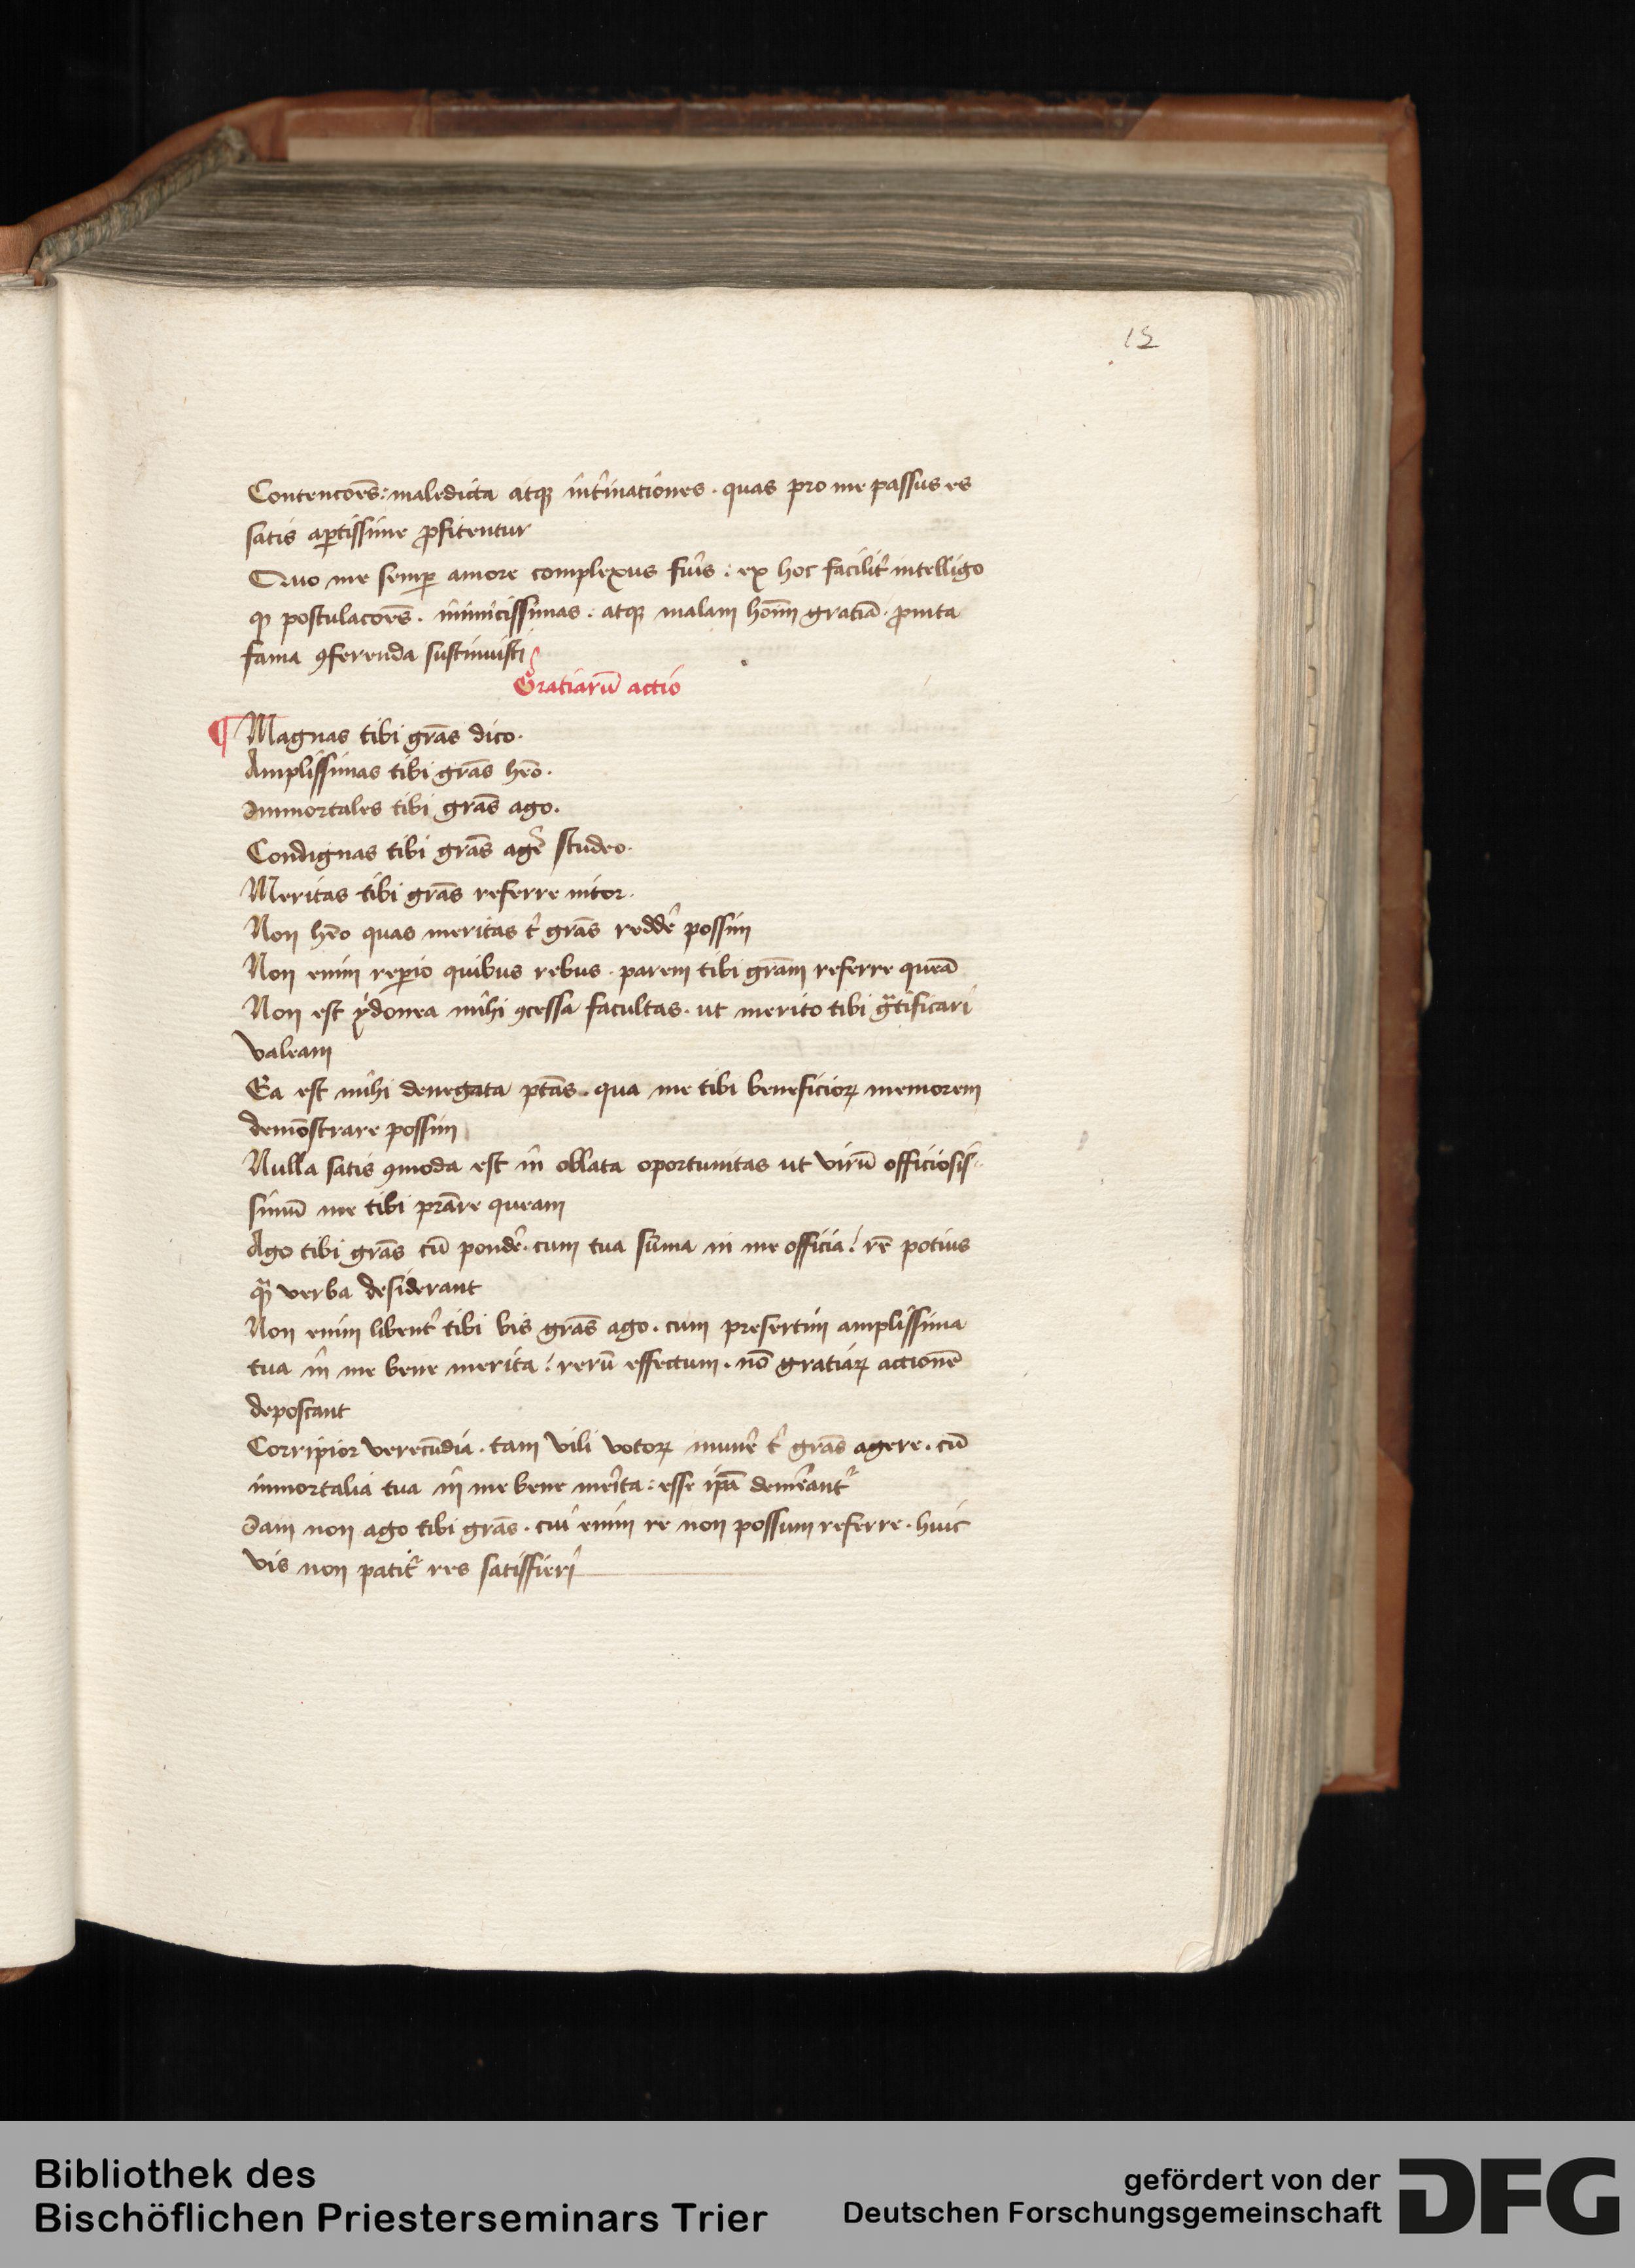 15
Contencōēs: maledicta atqꝫ int̓minationes · quas pro me passus es
satis aꝑtissime ꝓfitentur
Quo me semꝑ amore complexus fu̓is : ex hoc facilit̓ intelligo
qꝫ postulacōēs · inimicissimas · atqꝫ malam hoīm gratiā · ꝓ mta
fama ꝯferenda sustinuisti
Gratiarū actio
¶ Magnas tibi grās dico ·
Amplissimas tibi grās heō ·
Immortales tibi grās ago ·
Condignas tibi grās age̓ studeo ·
Meritas tibi grās referre nitor ·
Non heō quas meritas t̓ grās redde̓ possim
Non enim reꝑio quibus rebus · parem tibi grām referre queā
Non est ydonea mihi ꝯcessa facultas · ut merito tibi gᵃtificari
valeam
Ea est mihi denegata ptās · qua me tibi beneficioꝝ memorem
demōstrare possim
Nulla satis ꝯmoda est m̄ oblata oportunitas ut virū officiosis-
simū me tibi prāre queam
Ago tibi grās cū ponde̓ · cum tua sūma in me officia : rē potius
qᵃꝫ verba desiderant
Non enim libent̓ tibi vis grās ago · cum presertim amplissima
tua in me bene merita : rerū effectum · nō gratiaꝝ actionē
deposcant
Corripior verecūdia · tam vili votoꝝ mune̓ t̓ grās agere · cū
inmortalia tua in me bene me̓ita : esse ip̄a deme̓ant̓
Iam non ago tibi grās · cui enim re non possum referre · huic
vis non patit̓ res satisfieri
Bibliothek des
Bischöflichen Priesterseminars Trier
gefördert von der
Deutschen Forschungsgemeinschaft
DFG